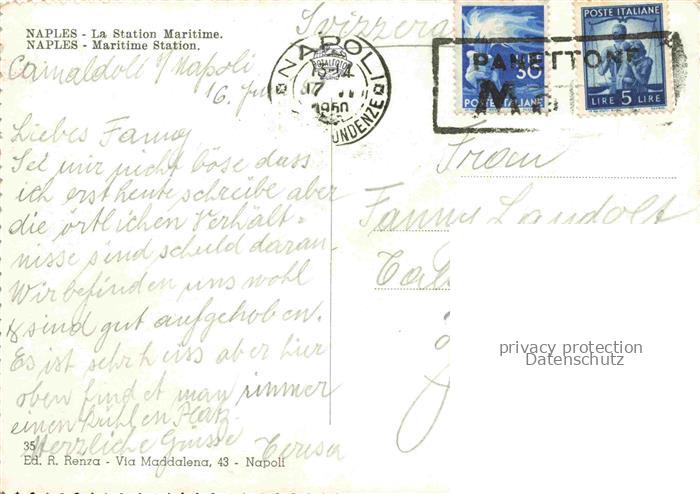 NAPLES - La Station Maritime.
NAPLES - Maritime Station.
Svizzera
Camaldoli s/Napoli
16. Juni
NAPOLI
17
1950
PANETTONE
M
30
POSTE ITALIANE
POSTE ITALIANE
LIRE 5 LIRE
Liebes Fanny
Sei mir nicht böse dass
ich erst heute schreibe aber
die örtlichen Verhält=
nisse sind schuld daran.
Wir befinden uns wohl
& sind gut aufgehoben.
Es ist sehr heiss aber hier
oben findet man immer
einen kühlen Platz.
Herzliche Grüsse
Teresa
Frau
Fanny Landolt
privacy protection
Datenschutz
35
Ed. R. Renza - Via Maddalena, 43 - Napoli